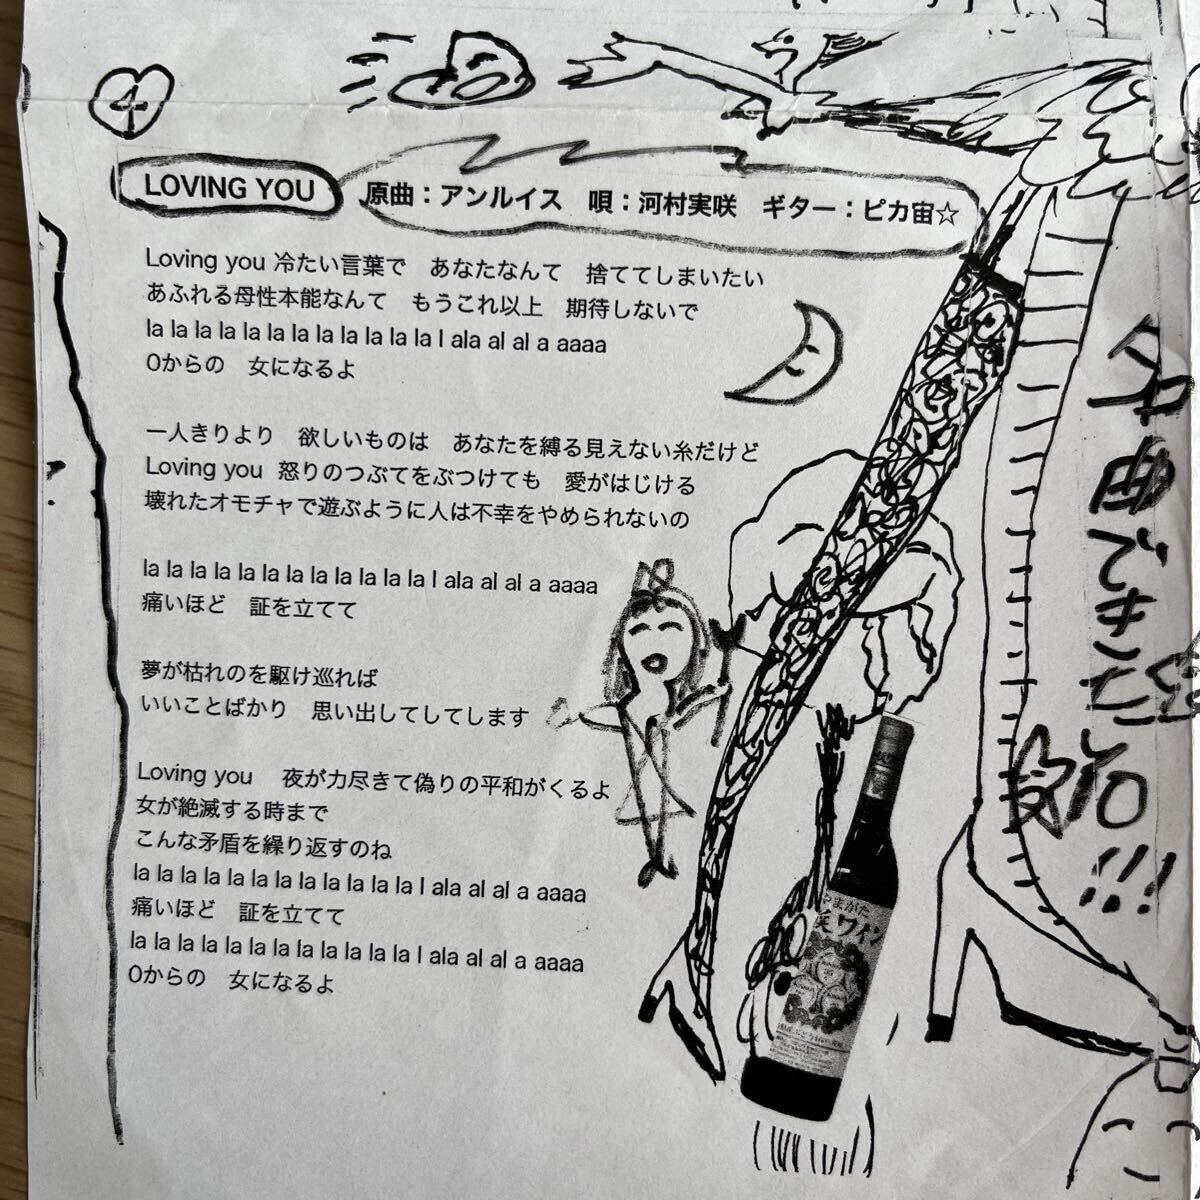 4
LOVING YOU
原曲：アンルイス　唄：河村実咲　ギター：ピカ宙☆
Loving you 冷たい言葉で　あなたなんて　捨ててしまいたい
あふれる母性本能なんて　もうこれ以上　期待しないで
la la la la la la la la la la la la l ala al al a aaaa
0からの　女になるよ
一人きりより　欲しいものは　あなたを縛る見えない糸だけど
Loving you 怒りのつぶてをぶつけても　愛がはじける
壊れたオモチャで遊ぶように人は不幸をやめられないの
la la la la la la la la la la la la l ala al al a aaaa
痛いほど　証を立てて
夢が枯れのを駆け巡れば
いいことばかり　思い出してしてします
Loving you　夜が力尽きて偽りの平和がくるよ
女が絶滅する時まで
こんな矛盾を繰り返すのね
la la la la la la la la la la la la l ala al al a aaaa
痛いほど　証を立てて
la la la la la la la la la la la la l ala al al a aaaa
0からの　女になるよ
名曲できた
!!!
やまがた
ワイン